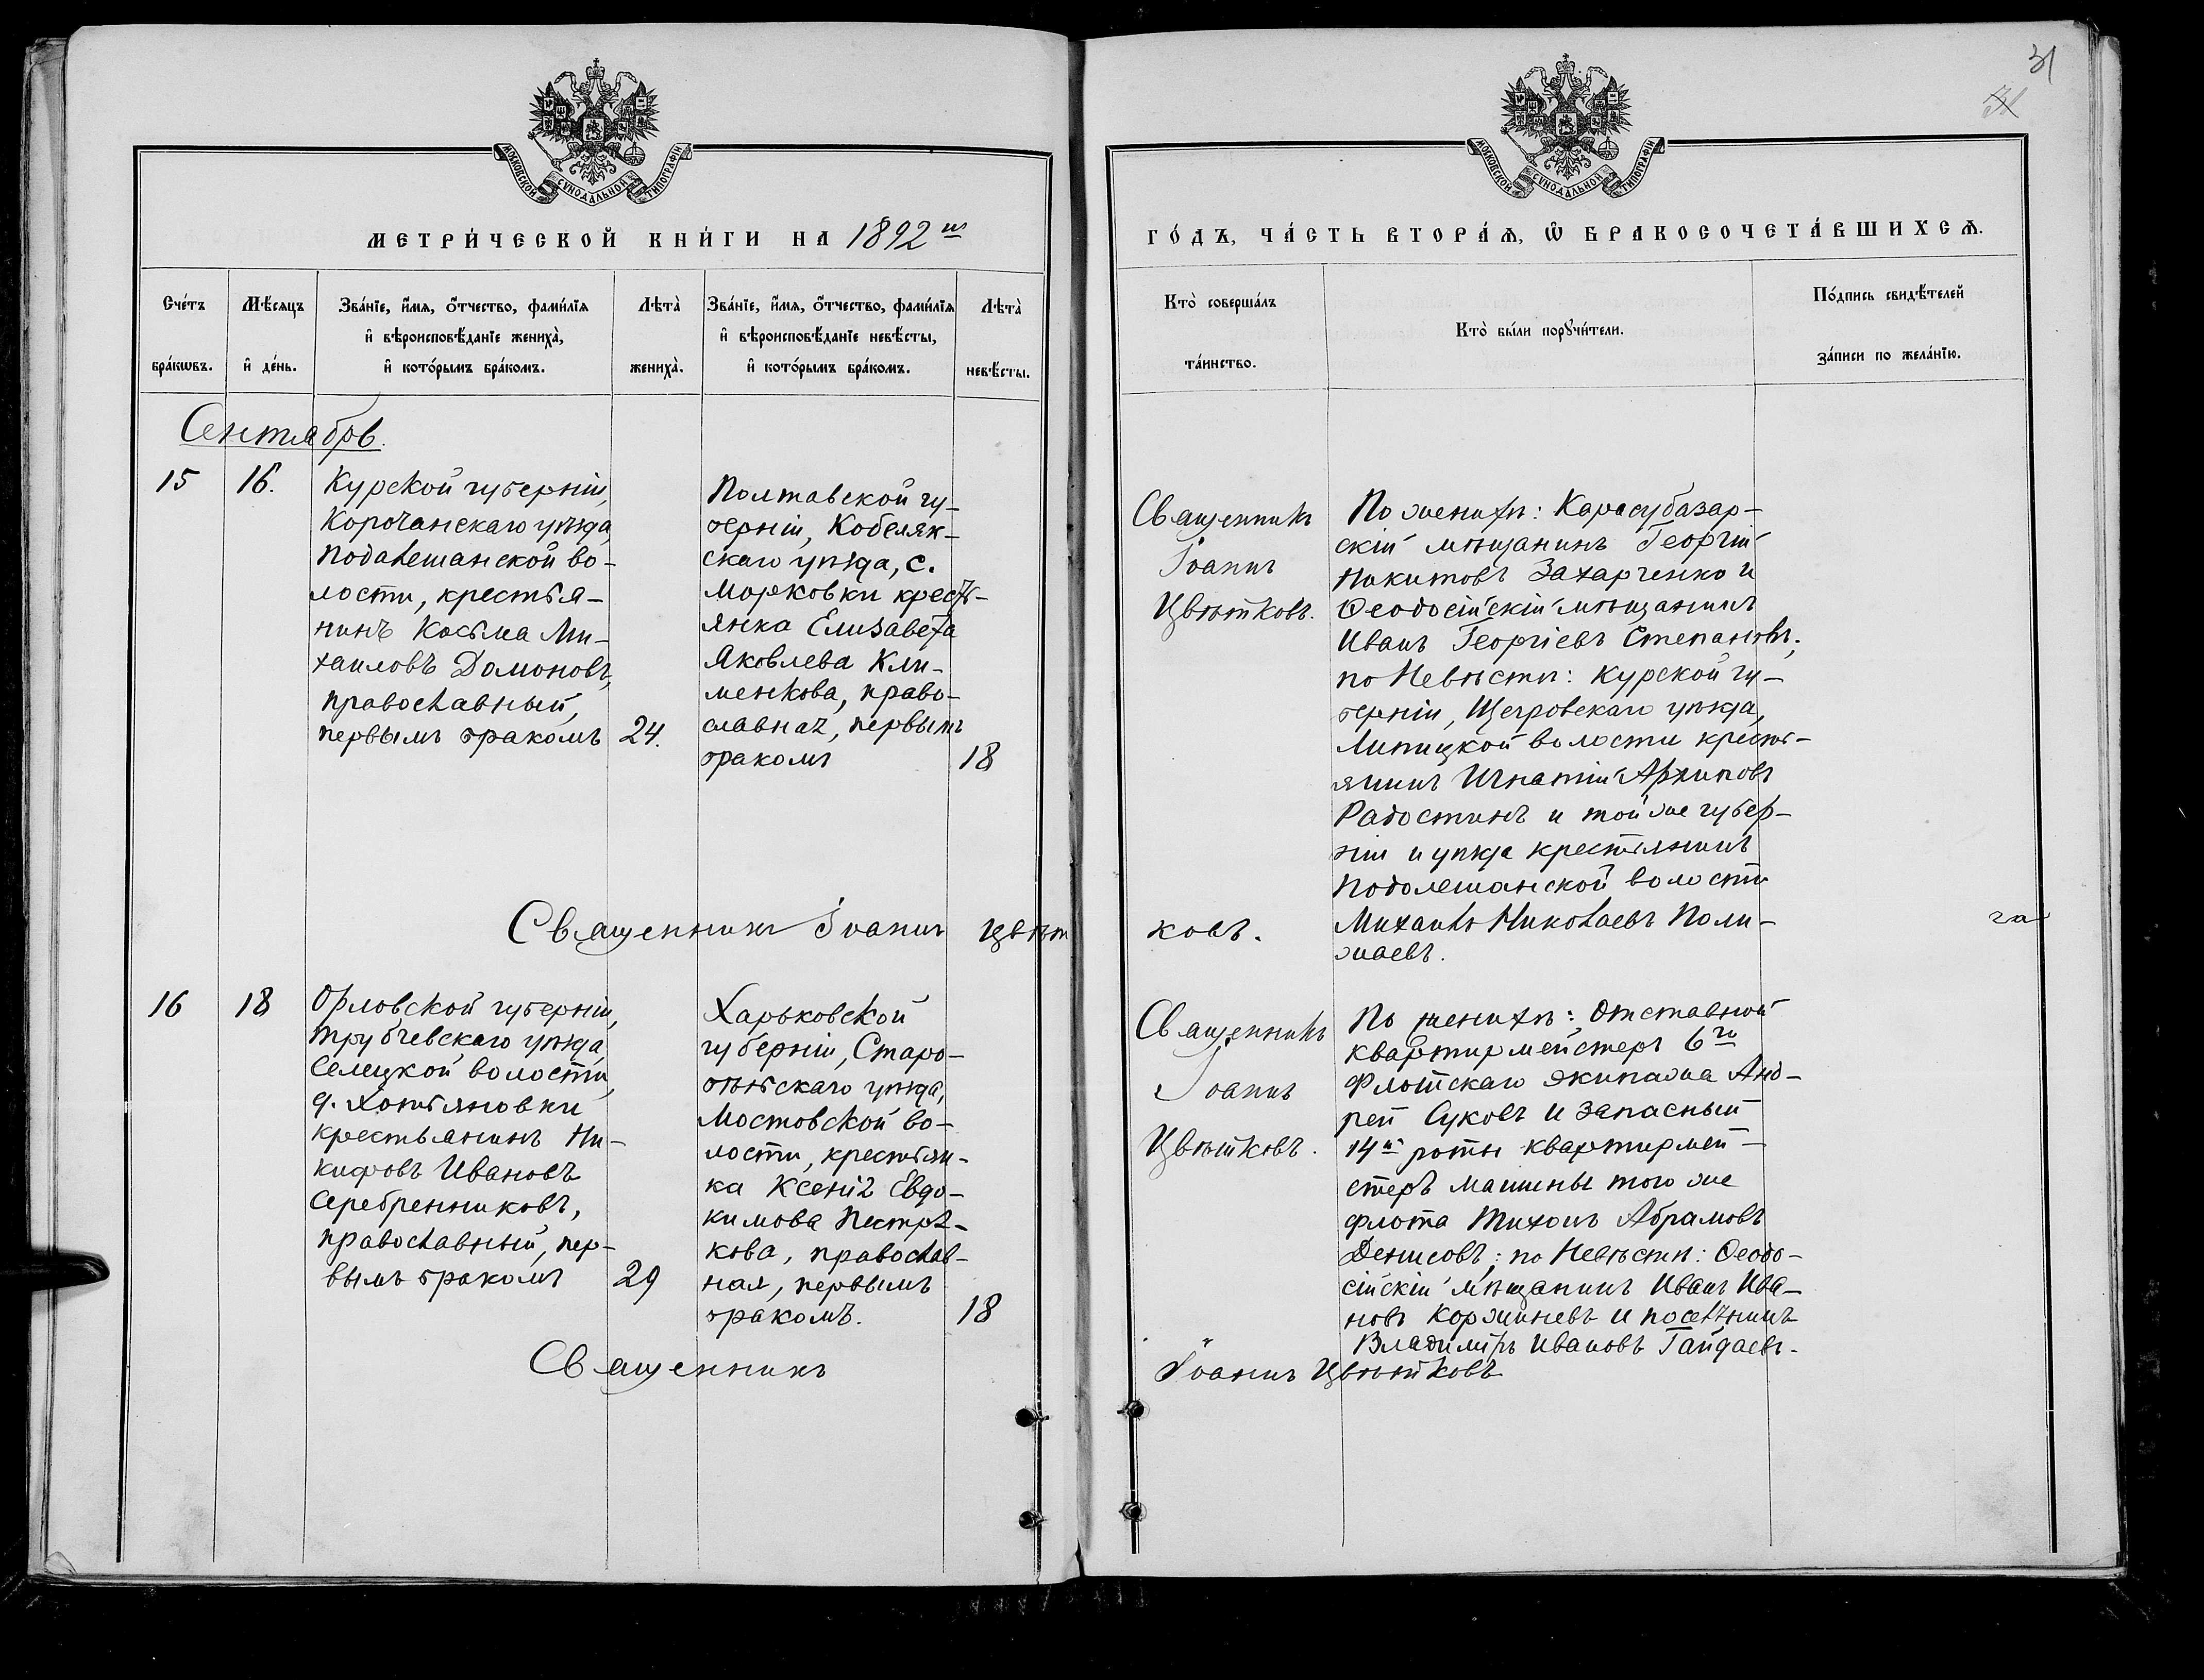 31
МОСКОВСКОЙ СѴНОДАЛЬНОЙ ТИПОГРАФІИ
МОСКОВСКОЙ СѴНОДАЛЬНОЙ ТИПОГРАФІИ
МЕТРИ́ЧЕСКОЙ КНИ́ГИ НА 1892 й
ГО́ДЪ, ЧА́СТЬ ВТОРА́Ѧ, Ѽ БРАКОСОЧЕТА́ВШИХСѦ.
Сче́тъ
бра́кωвъ.
Мѣ́сяцъ
и҆ де́нь.
Зва́нїе, и҆́мя, ѻ҆́тчество, фами́лїя
и҆ вѣроисповѣ́данїе жениха̀,
и҆ кото́рымъ бра́комъ.
Лѣта̀
жениха̀.
Зва́нїе, и҆́мя, ѻ҆́тчество, фами́лїя
и҆ вѣроисповѣ́данїе невѣ́сты,
и҆ кото́рымъ бра́комъ.
Лѣта̀
невѣ́сты.
Кто̀ соверша́лъ
та́инство.
Кто̀ бы́ли порꙋчи́тели.
По́дпись свидѣ́телей
за́писи по жела́нїю.
Сентябрь.
15
16.
Курской губерніи,
Корочанскаго уѣзда
Подолешанской во-
лости, крестья-
нинъ Косьма Ми-
хаиловъ Домоновъ,
православный,
первымъ бракомъ
24.
Полтавской гу-
берніи, Кобеляк-
скаго уѣзда, с.
Морковки кресть-
янка Елизавета
Яковлева Кли-
менкова, право-
славная, первымъ
бракомъ
18
Священникъ
Іоаннъ
Цвѣтковъ.
По женихѣ: Карасубазар-
скій мѣщанинъ Георгій
Никитовъ Захарченко и
Ѳеодосійскій мѣщанинъ
Иванъ Георгіевъ Степановъ;
по Невѣстѣ: Курской гу-
берніи, Щегровскаго уѣзда,
Липицкой волости кресть-
янинъ Игнатій Архиповъ
Радостинъ и той же губер-
ніи и уѣзда крестьянинъ
Подолешанской волости
Михаилъ Николаевъ Поли-
жаевъ.
Священникъ Іоаннъ Цвѣт
ковъ.
га
16
18
Орловской губерніи,
Трубчевскаго уѣзда
Селецкой волости,
д. Хотьяновки
крестьянинъ Ни-
кифовъ Ивановъ
Серебренниковъ,
православный, пер-
вымъ бракомъ
29
Харьковской
губерніи, Старо-
бѣльскаго уѣзда,
Мостовской во-
лости, крестьян-
ка Ксенія Евдо-
кимова Пестря-
кова, православ-
ная, первымъ
бракомъ.
18
Священникъ
Іоаннъ
Цвѣтковъ.
По женихѣ: Отставной
квартирмейстеръ 6го
Флотскаго экипажа Анд-
рей Суковъ и Запасный
14й роты квартирмей-
стеръ машины того же
флота Тихонъ Абрамовъ
Денисовъ; по Невѣстѣ: Ѳеодо-
сійскій мѣщанинъ Иванъ Ива-
новъ Коржиневъ и поселянинъ
Владиміръ Ивановъ Гайдаевъ.
Священникъ
Іоаннъ Цвѣтковъ